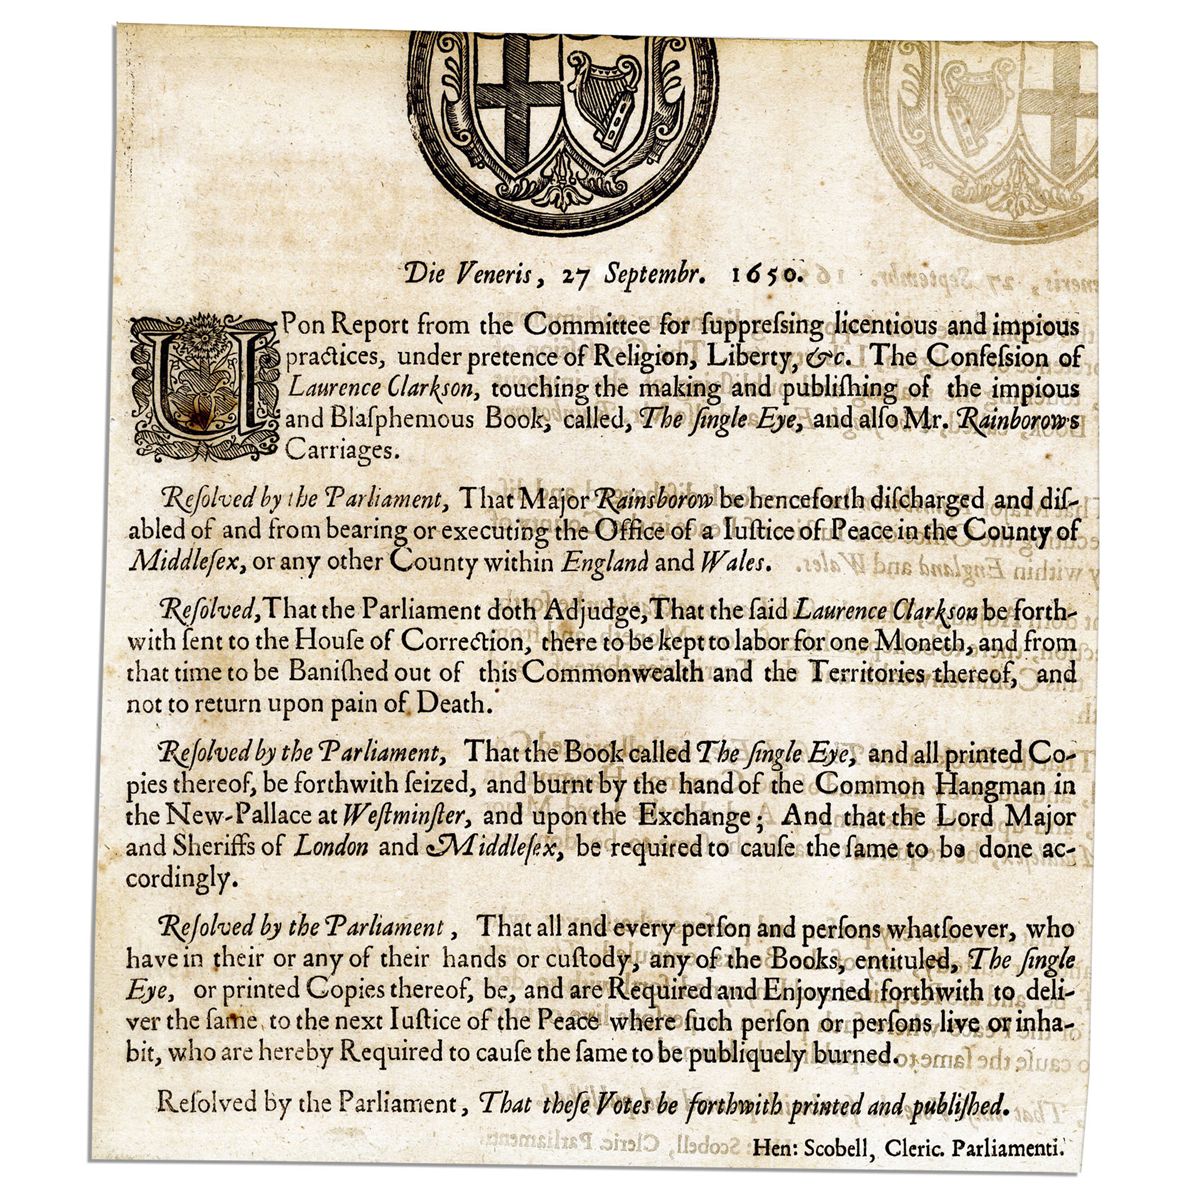 Die Veneris, 27 Septembr. 1650.
UPon Report from the Committee for ſuppreſsing licentious and impious
practices, under pretence of Religion, Liberty, &c. The Confeſsion of
Laurence Clarkſon, touching the making and publiſhing of the impious
and Blaſphemous Book, called, The ſingle Eye, and alſo Mr. Rainborows
Carriages.
Reſolved by the Parliament, That Major Rainsborow be henceforth diſcharged and diſ-
abled of and from bearing or executing the Office of a Iuſtice of Peace in the County of
Middleſex, or any other County within England and Wales.
Reſolved, That the Parliament doth Adjudge, That the ſaid Laurence Clarkſon be forth-
with ſent to the Houſe of Correction, there to be kept to labor for one Moneth, and from
that time to be Baniſhed out of this Commonwealth and the Territories thereof, and
not to return upon pain of Death.
Reſolved by the Parliament, That the Book called The ſingle Eye, and all printed Co-
pies thereof, be forthwith ſeized, and burnt by the hand of the Common Hangman in
the New-Pallace at Weſtminſter, and upon the Exchange; And that the Lord Major
and Sheriffs of London and Middleſex, be required to cauſe the ſame to be done ac-
cordingly.
Reſolved by the Parliament, That all and every perſon and perſons whatſoever, who
have in their or any of their hands or cuſtody, any of the Books, entituled, The ſingle
Eye, or printed Copies thereof, be, and are Required and Enjoyned forthwith to deli-
ver the ſame to the next Iuſtice of the Peace where ſuch perſon or perſons live or inha-
bit, who are hereby Required to cauſe the ſame to be publiquely burned.
Reſolved by the Parliament, That theſe Votes be forthwith printed and publiſhed.
Hen: Scobell, Cleric. Parliamenti.